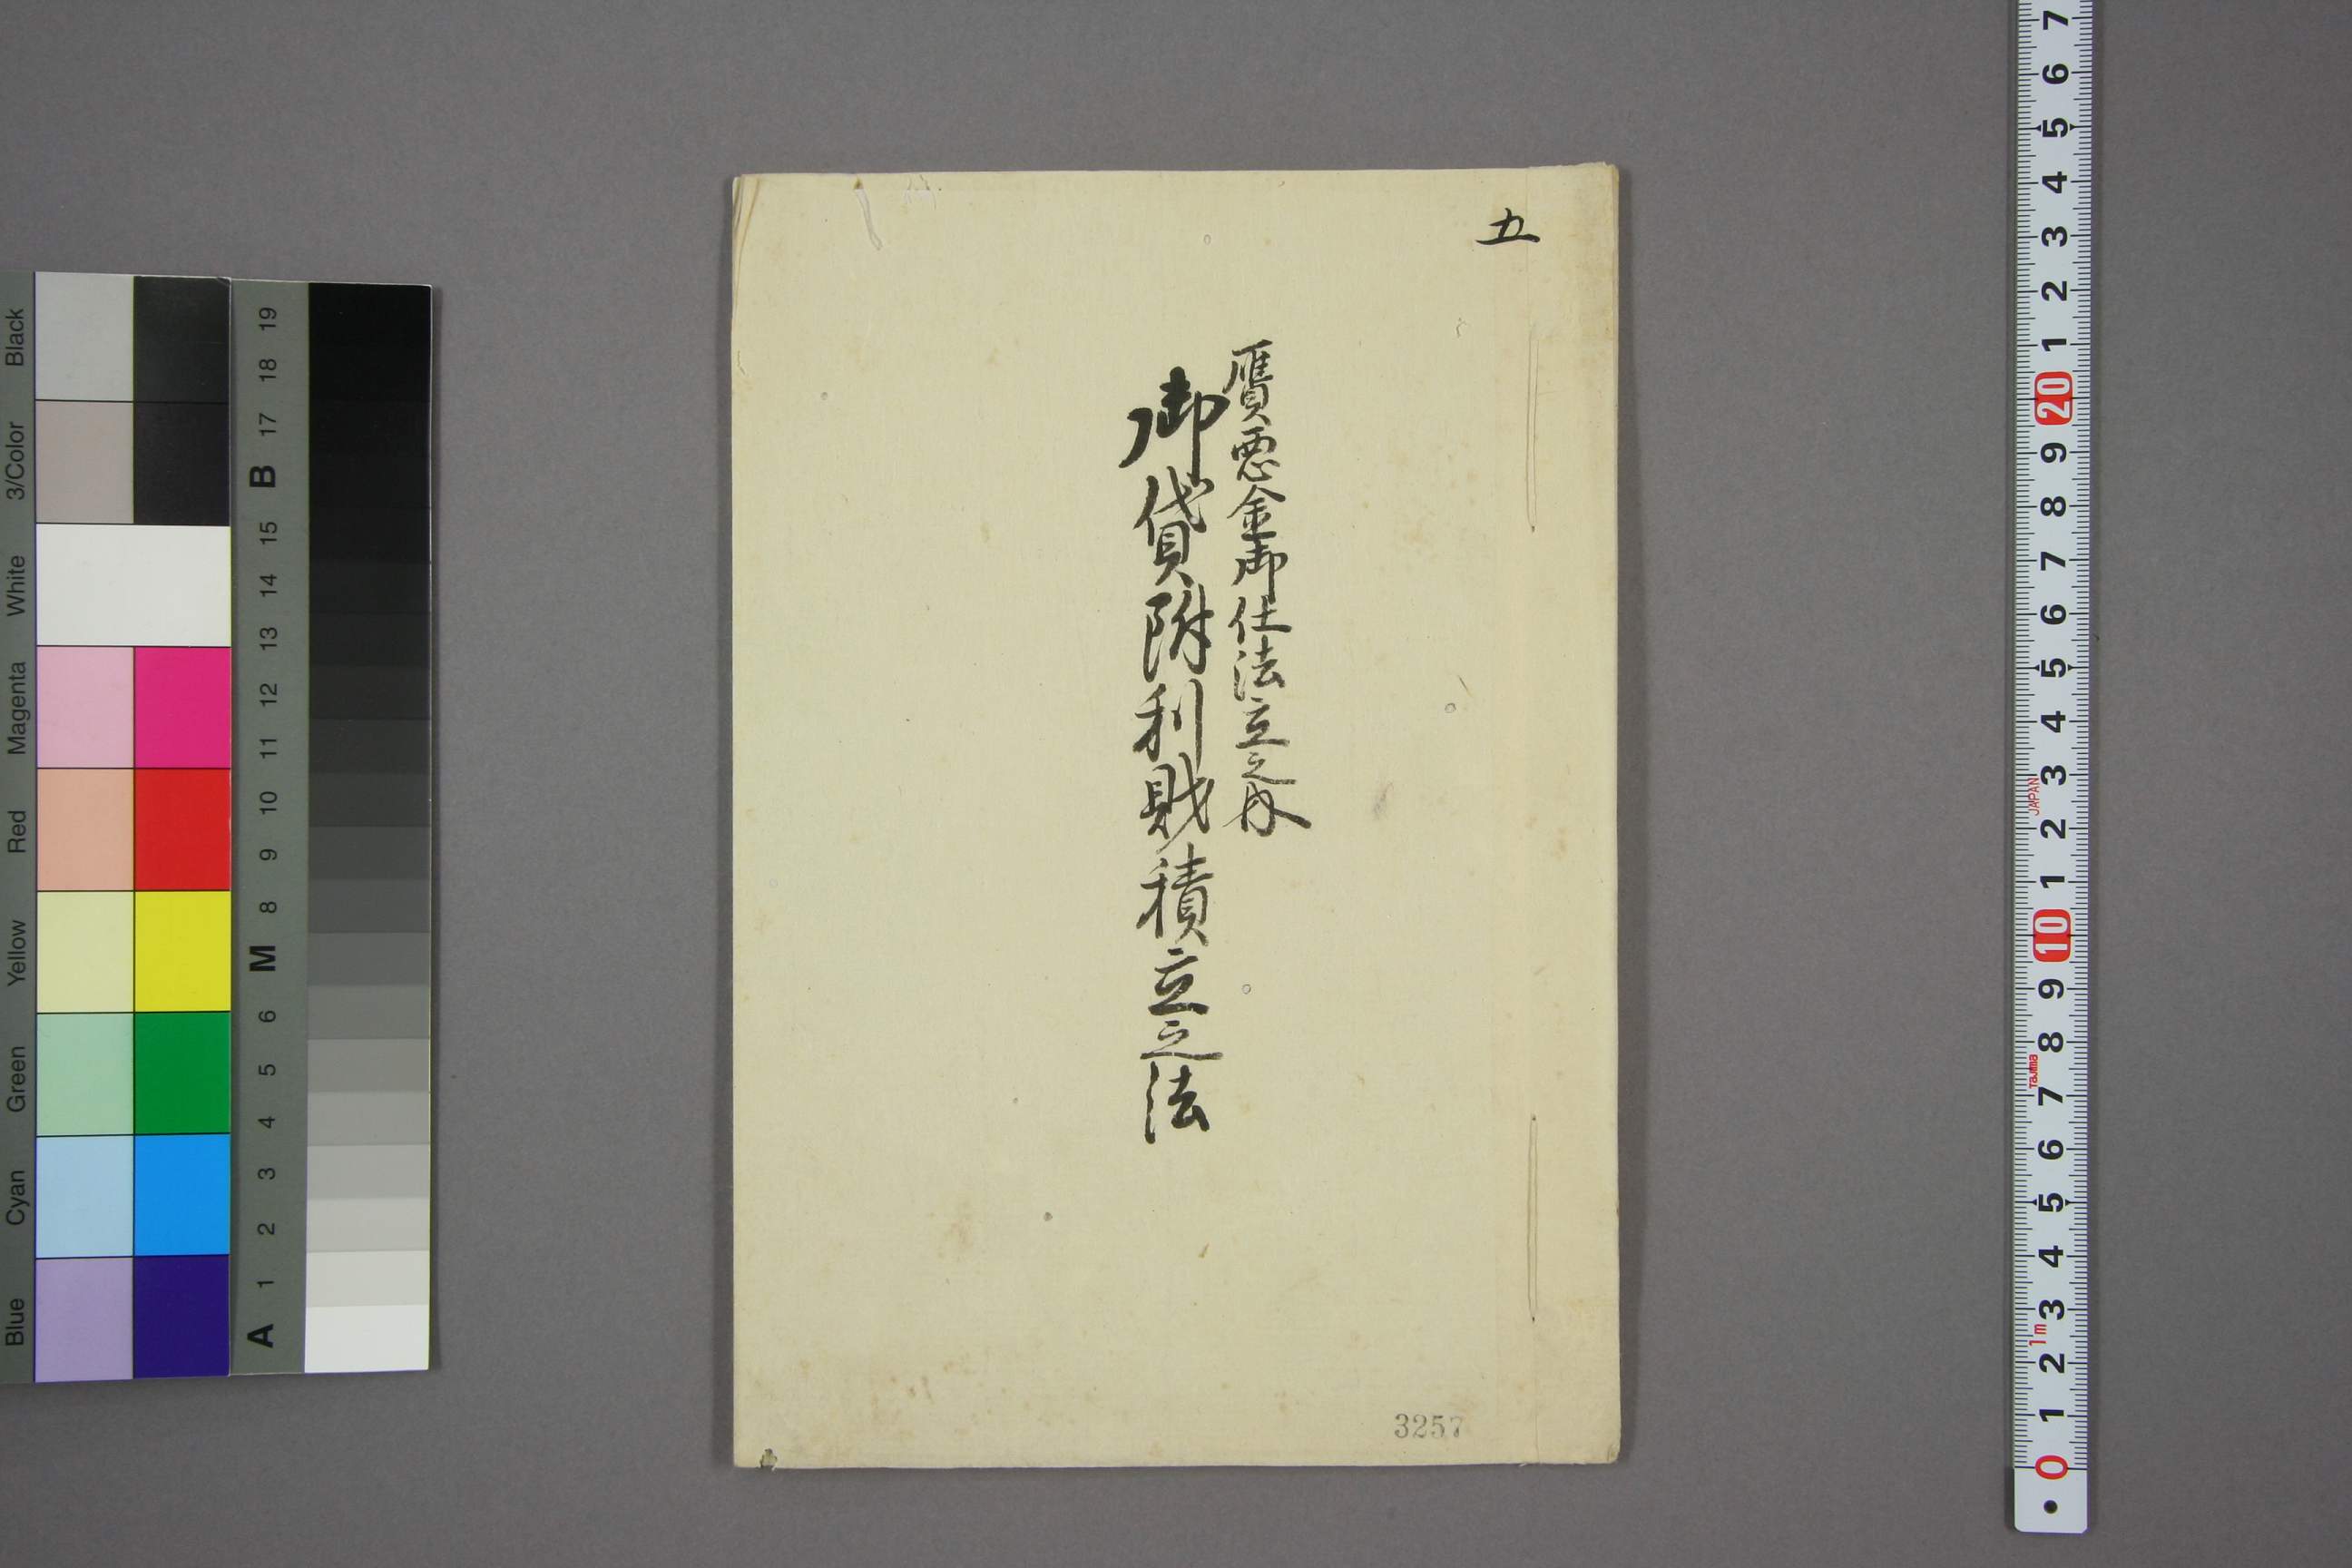 五
贋悪金御仕法立之内
御貸附利財積立之法
3257
Black
3/Color
White
Magenta
Red
Yellow
Green
Cyan
Blue
19
18
17
B
15
14
13
12
11
10
9
8
M
6
5
4
3
2
1
A
7
6
5
4
3
2
1
20
9
8
7
6
5
4
3
JAPAN
2
1
10
9
8
Tajima
7
6
5
4
3
1m
2
1
0